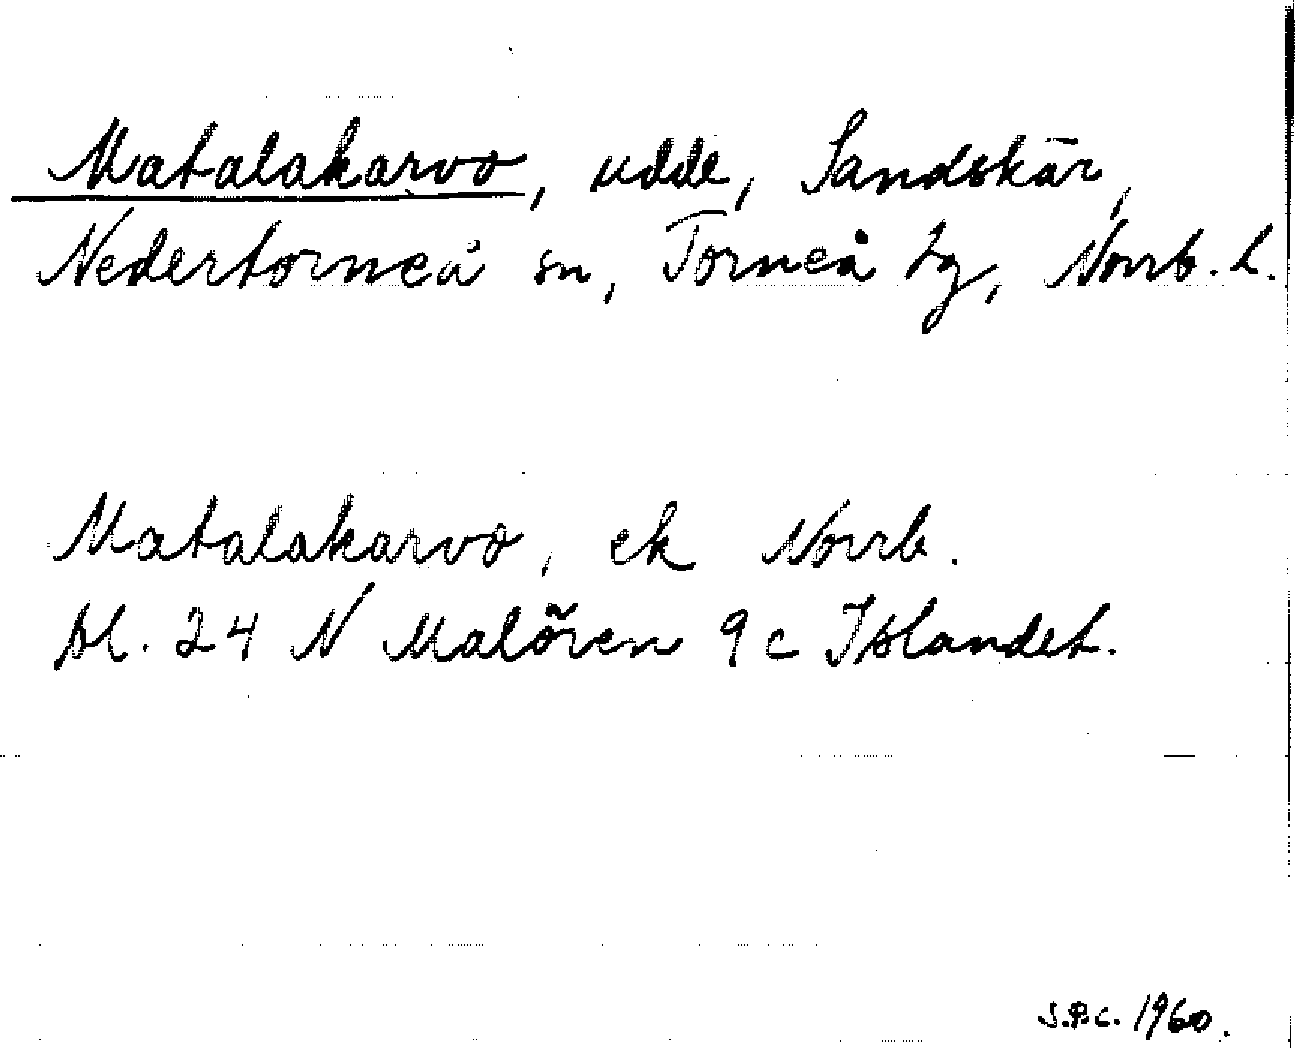 Matalakarvo, udde, Sandskär,
Nedertorneå sn, Torneå tg, Norrb. L.
Matalakarvo, ek Norrb.
bl. 24 N Malören 9 c Islandet.
S.B.C. 1960.